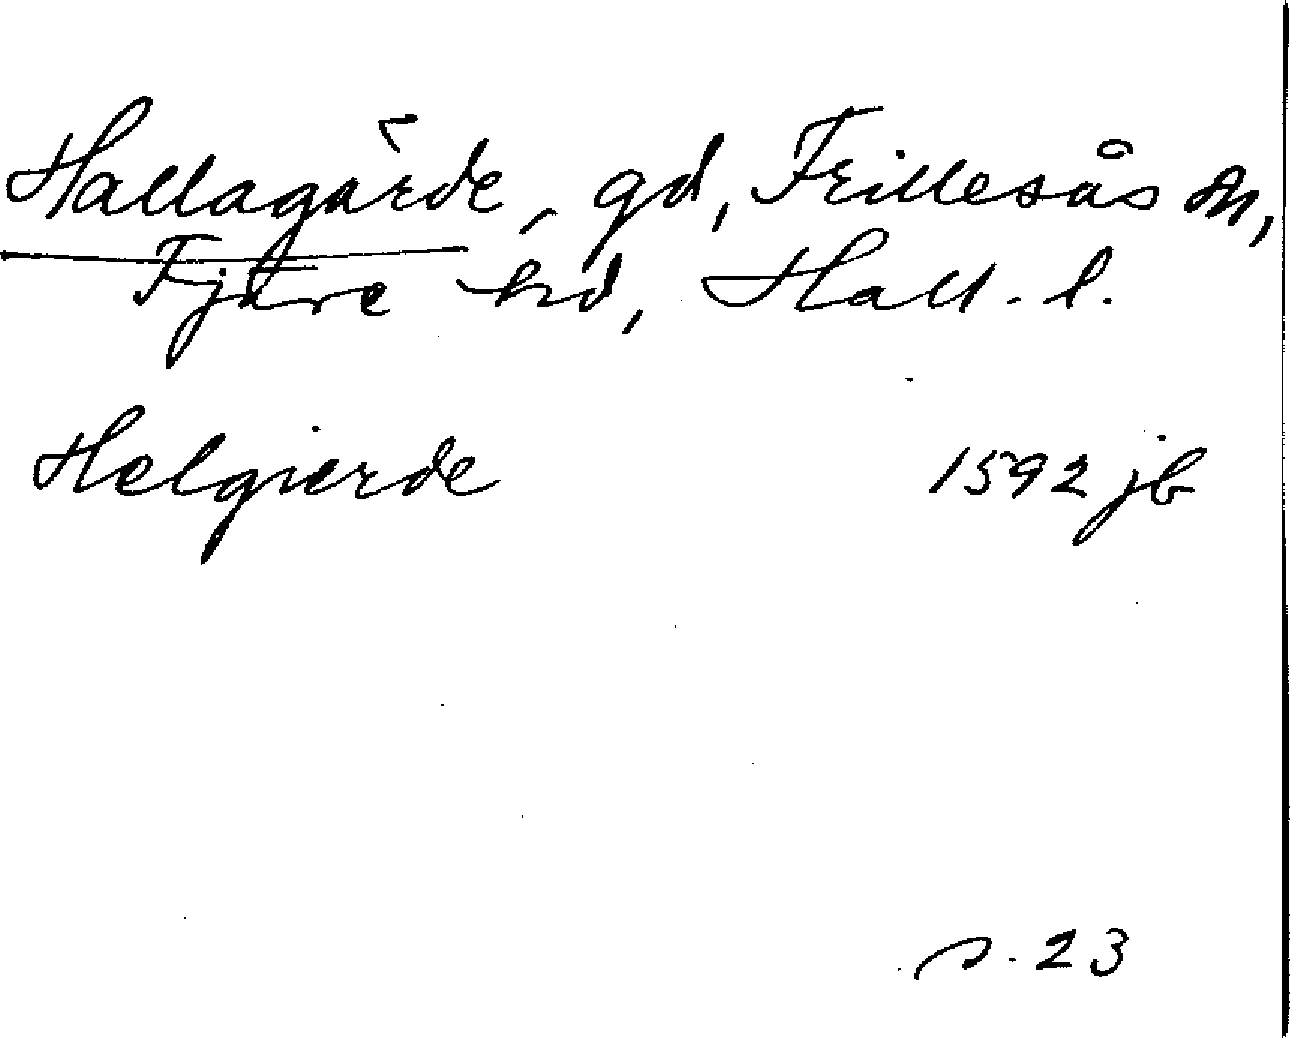 Hallagärde, gd, Frillesås sn,
Fjäre hd, Hall. l.
Helgierde 1592 jb
s. 23